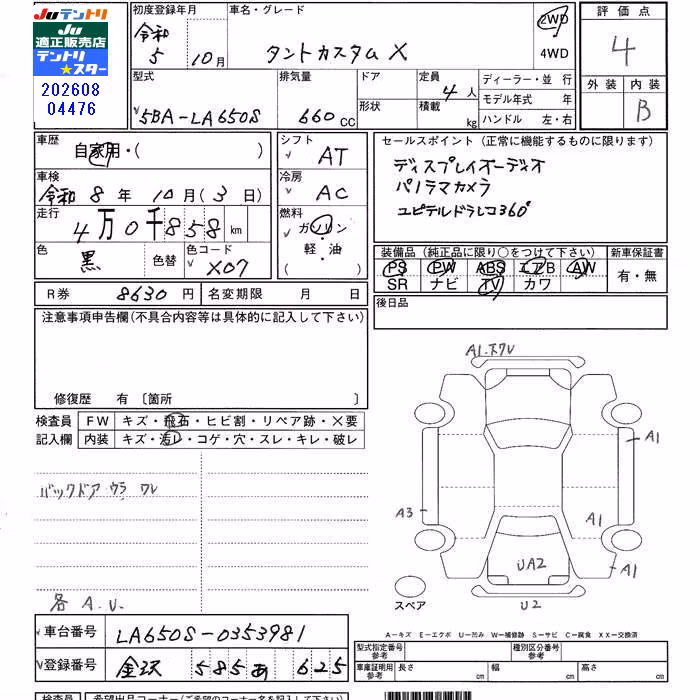 JUテントリ
JU
適正販売店
テントリ
★スター
202608
04476
初度登録年月
令和
5 10月
車名・グレード
タントカスタム X
2WD
4WD
評価点
4
外装 内装
B
型式
5BA-LA650S
排気量
660 CC
ドア
形状
定員
4 人
積載 kg
ディーラー・並 行
モデル年式 年
ハンドル 左・右
車歴
自家用・( )
車検
令和 8 年 10 月 ( 3 日 )
走行
4 万 0 千 8 5 8 km
色
黒
色替
色コード
X07
シフト
AT
冷房
AC
燃料
ガソリン
軽・油
( )
セールスポイント (正常に機能するものに限ります)
ディスプレイオーディオ
パノラマカメラ
ユピテルドラレコ360°
装備品 (純正品に限り○をつけて下さい)
PS PW ABS エアB AW
SR ナビ TV カワ
新車保証書
有・無
R券 8630 円
名変期限 月 日
後日品
注意事項申告欄(不具合内容等は具体的に記入して下さい)
修復歴 有 〔箇所 〕
検査員
記入欄
FW キズ・飛石・ヒビ割・リペア跡・×要
内装 キズ・汚レ・コゲ・穴・スレ・キレ・破レ
バックドア ウラ ワレ
各 A.U.
A1.スワレ
A1
A3
A1
A1
UA2
U2
スペア
A-キズ E-エクボ U-凹み W-補修跡 S-サビ C-腐食 XX-交換済
車台番号 LA650S-0353981
登録番号 金沢 585 あ 625
型式指定番号
参考
種別区分番号
参考
車庫証明用
参考
長さ cm 幅 cm 高さ cm
検査員 希望出品コーナー(ご希望のコーナーに